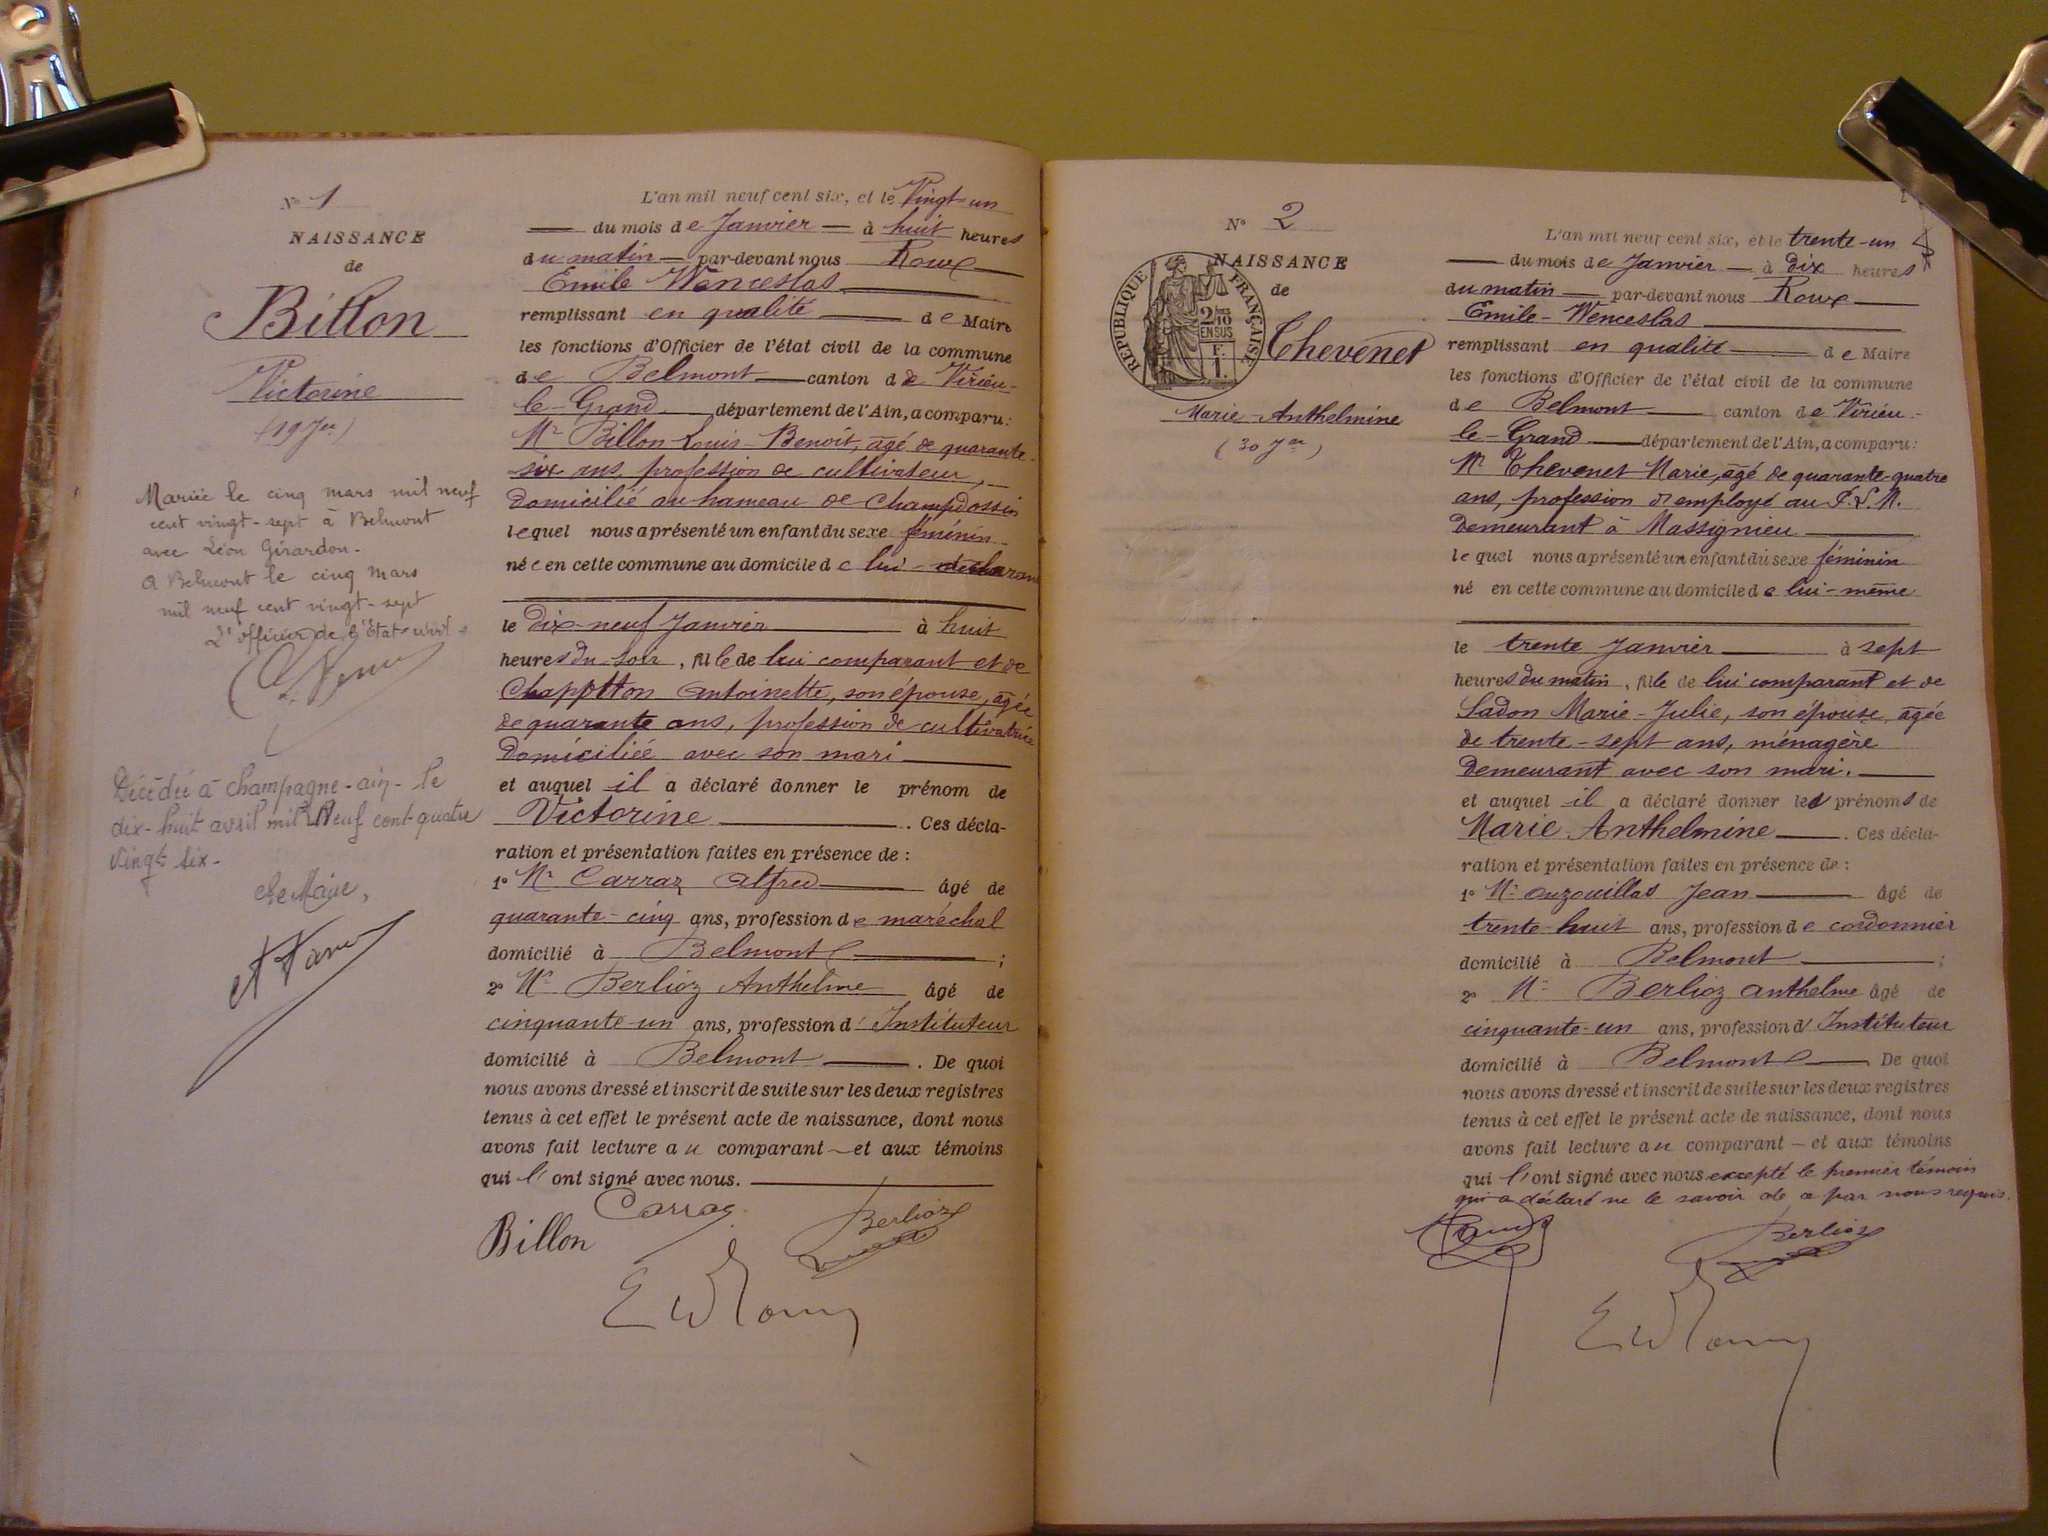 N° 1
NAISSANCE
de
Billon
Victorine
(19 Jer)
Mariée le cinq mars mil neuf
cent vingt-sept à Belmont
avec Léon Girardon.
A Belmont le cinq mars
mil neuf cent vingt-sept
L' officier de l'Etat-civil
Décédée à Champagne-ain- le
dix-huit avril mil Neuf cent quatre
vingt six-
Le Maire,
L'an mil neuf cent six, et le Vingt-un
du mois de Janvier à huit heures
du matin par-devant nous Roux
Emile Wenceslas
remplissant en qualité de Maire
les fonctions d'Officier de l'état civil de la commune
de Belmont canton de Virieu-
le-Grand département de l'Ain, a comparu:
Mr Billon Louis-Benoît, âgé de quarante-
six ans, profession de cultivateur,
domicilié au hameau de Champdossin
lequel nous a présenté un enfant du sexe féminin
née en cette commune au domicile de lui-déclarant
le dix-neuf Janvier à huit
heures du soir, fille de lui comparant et de
Chappotton Antoinette, son épouse, âgée
de quarante ans, profession de cultivatrice
domiciliée avec son mari
et auquel il a déclaré donner le prénom de
Victorine. Ces décla-
ration et présentation faites en présence de :
1° Mr Carraz Alfred âgé de
quarante-cinq ans, profession de maréchal
domicilié à Belmont ;
2° Mr Berlioz Anthelme âgé de
cinquante-un ans, profession d'Instituteur
domicilié à Belmont. De quoi
nous avons dressé et inscrit de suite sur les deux registres
tenus à cet effet le présent acte de naissance, dont nous
avons fait lecture au comparant et aux témoins
qui l'ont signé avec nous.
Carraz
Billon Berlioz
E W Roux
N° 2
NAISSANCE
de
REPUBLIQUE FRANÇAISE
2/10 EN SUS
F. 1.
Chevenet
Marie-Anthelmine
(30 Jer)
L'an mil neuf cent six, et le trente-un
du mois de Janvier à dix heures
du matin par-devant nous Roux
Emile-Wenceslas
remplissant en qualité de Maire
les fonctions d'Officier de l'état civil de la commune
de Belmont canton de Virieu-
le-Grand département de l'Ain, a comparu:
Mr Chevenet Marie, âgé de quarante-quatre
ans, profession d'employé au P.L.M.
demeurant à Massignieu
lequel nous a présenté un enfant du sexe féminin
né en cette commune au domicile de lui-même
le trente Janvier à sept
heures du matin, fille de lui comparant et de
Ladon Marie-Julie, son épouse, âgée
de trente-sept ans, ménagère
demeurant avec son mari.
et auquel il a déclaré donner les prénoms de
Marie Anthelmine. Ces décla-
ration et présentation faites en présence de :
1° Mr Ouzouillas Jean âgé de
trente-huit ans, profession de cordonnier
domicilié à Belmont ;
2° Mr Berlioz Anthelme âgé de
cinquante-un ans, profession d'Instituteur
domicilié à Belmont. De quoi
nous avons dressé et inscrit de suite sur les deux registres
tenus à cet effet le présent acte de naissance, dont nous
avons fait lecture au comparant et aux témoins
qui l'ont signé avec nous excepté le premier témoin
qui a déclaré ne le savoir de ce par nous requis.
Berlioz
E W Roux